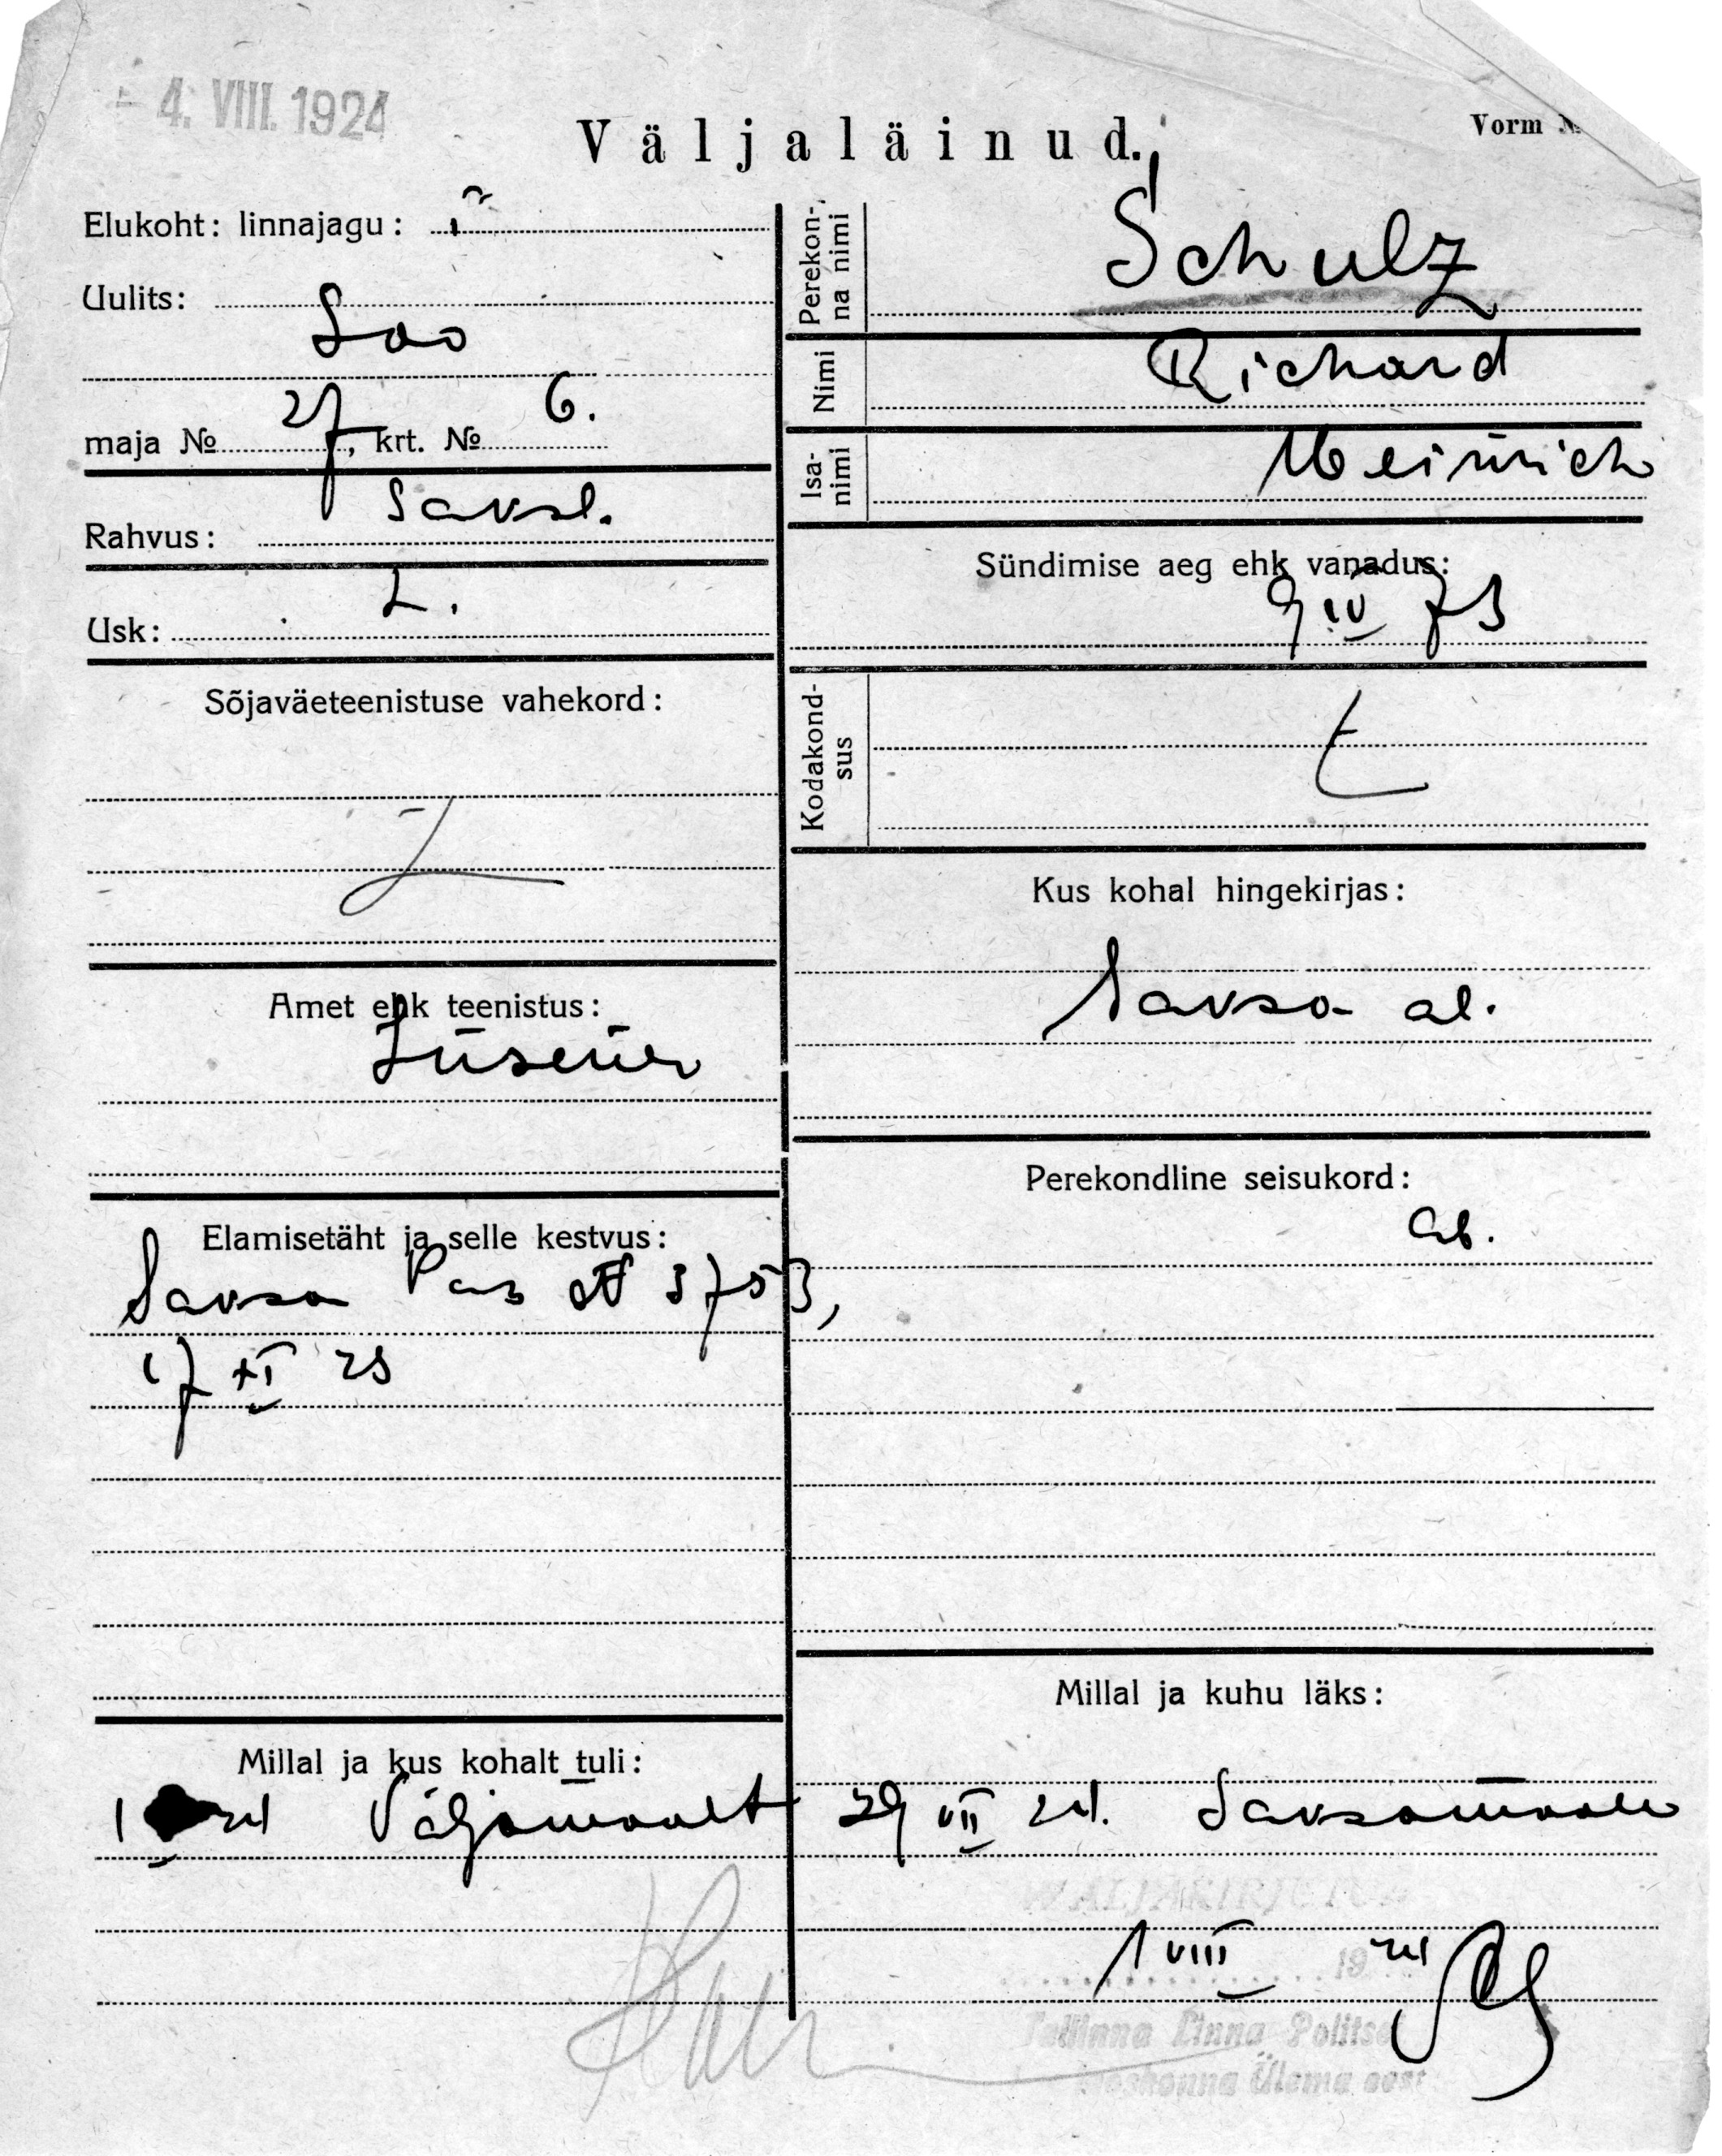 4. VIII. 1924
Väljaläinud.
Vorm №
Elukoht: linnajagu: I
Uulits:
Soo
maja № 27, krt. № 6.
Rahvus: Saksl.
Usk: L.
Sõjaväeteenistuse vahekord:
Amet ehk teenistus:
Insener
Elamisetäht ja selle kestvus:
Saksa Pas № 3753,
17 XI 23
Millal ja kus kohalt tuli:
24 Väljamaalt
Perekonna nimi Schulz
Nimi Richard
Isanimi Heinrich
Sündimise aeg ehk vanadus:
9 IV 73
Kodakondsus
Kus kohal hingekirjas:
Saksa al.
Perekondline seisukord:
Ab.
Millal ja kuhu läks:
29 VII 24. Saksamaale
WÄLJAKIRJUTUD
1 VIII 1924
Tallinna Linna Politsei
Jaoskonna Ülema eest